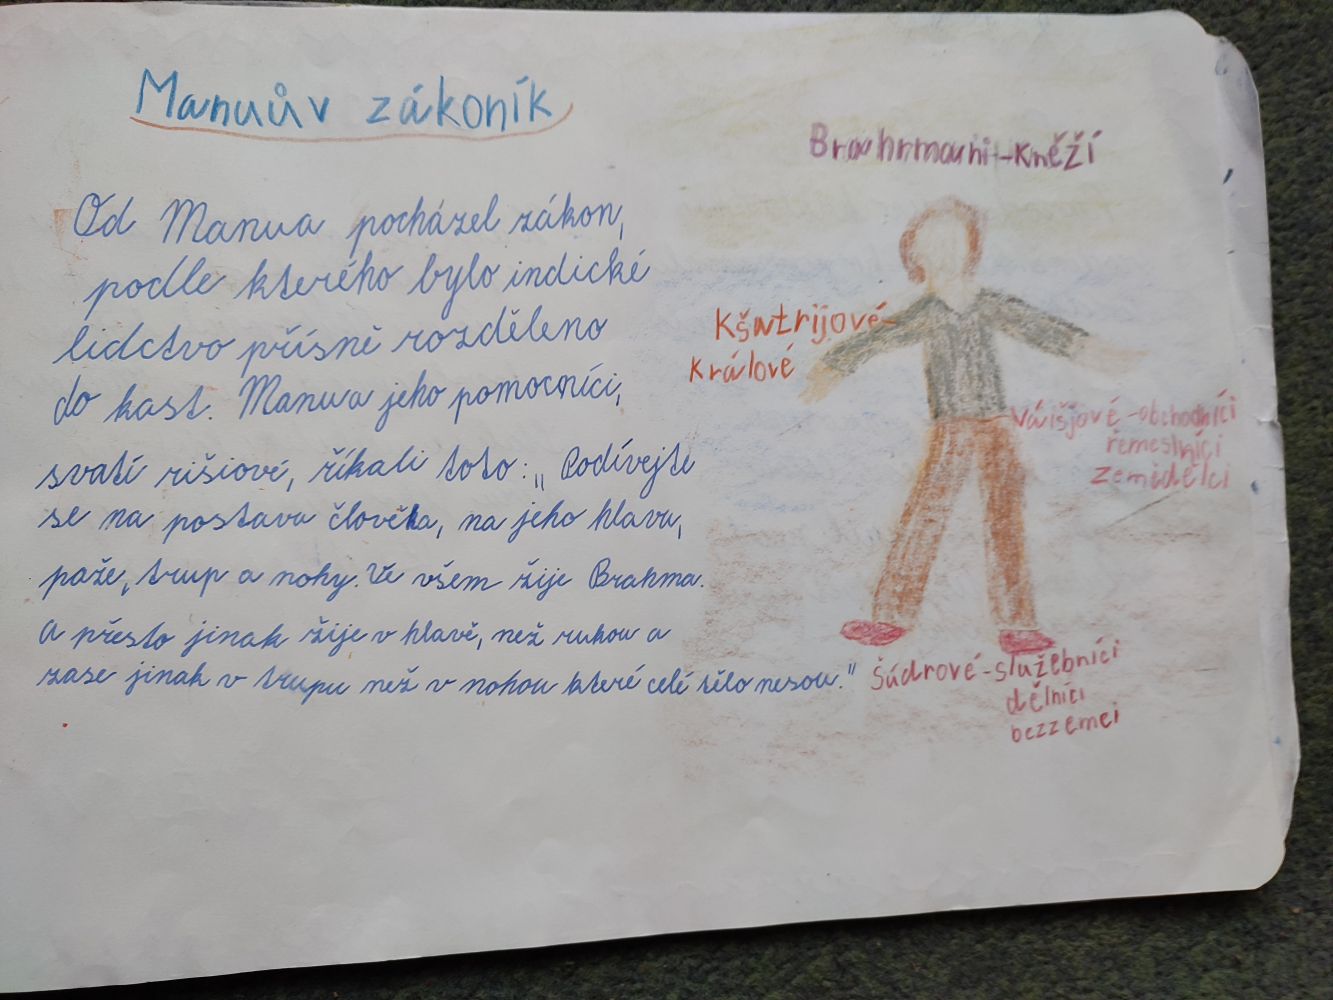 Manuův zákoník
Od Manua pocházel zákon,
podle kterého bylo indické
lidctvo přísně rozděleno
do kast. Manua jeho pomocníci,
svatí rišiové, říkali toto: „Podívejte
se na postavu člověka, na jeho hlavu,
paže, trup a nohy. Ve všem žije Brahma.
A přesto jinak žije v hlavě, než rukou a
zase jinak v trupu než v nohou které celé tělo nesou."
Brahrmani-Kněží
Kšatrijové-
Králové
Váišjové-obchodníci
řemeslníci
Zemidělci
Šúdrové-služebníci
dělníci
bezzemci